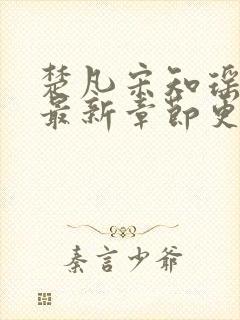 楚凡宋知瑶
最新章节更
秦言少爷